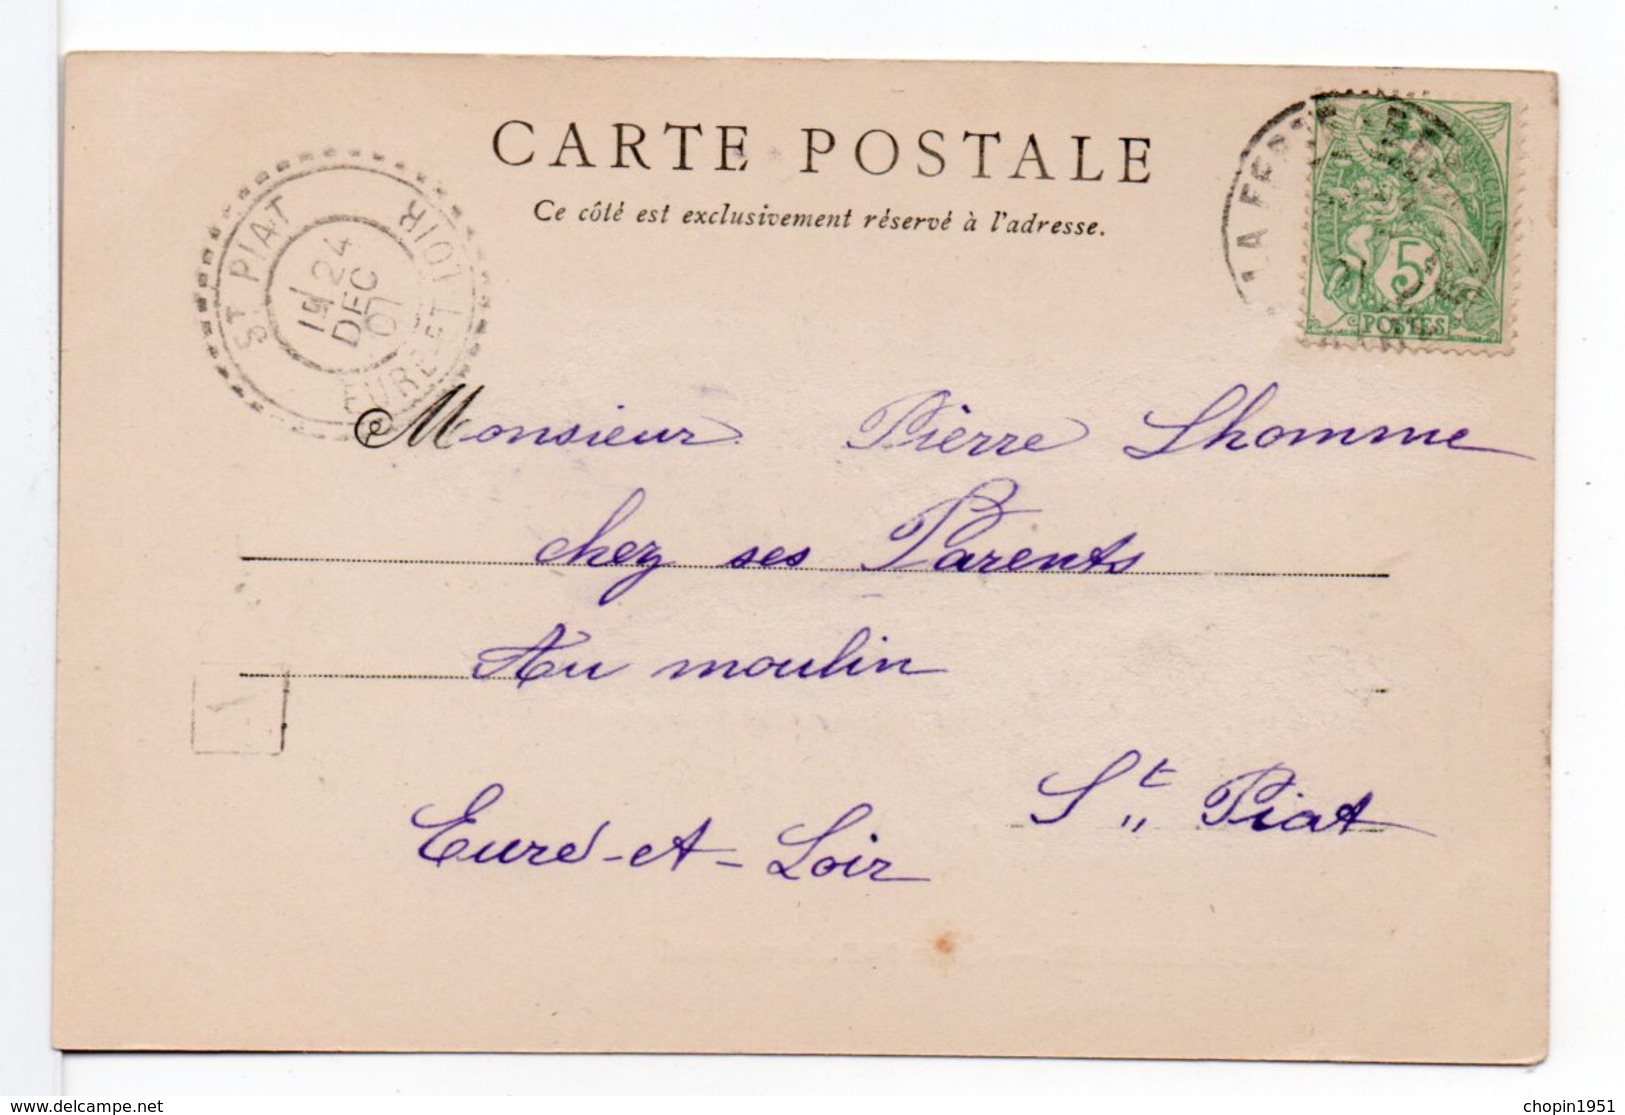 CARTE POSTALE
Ce côté est exclusivement réservé à l'adresse.
ST PIAT
24
DEC
01
EURE-ET-LOIR
5
POSTES
Monsieur Pierre Lhomme
chez ses Parents
Au moulin
St Piat
Eure-et-Loir
delcampe.net
chopin1951